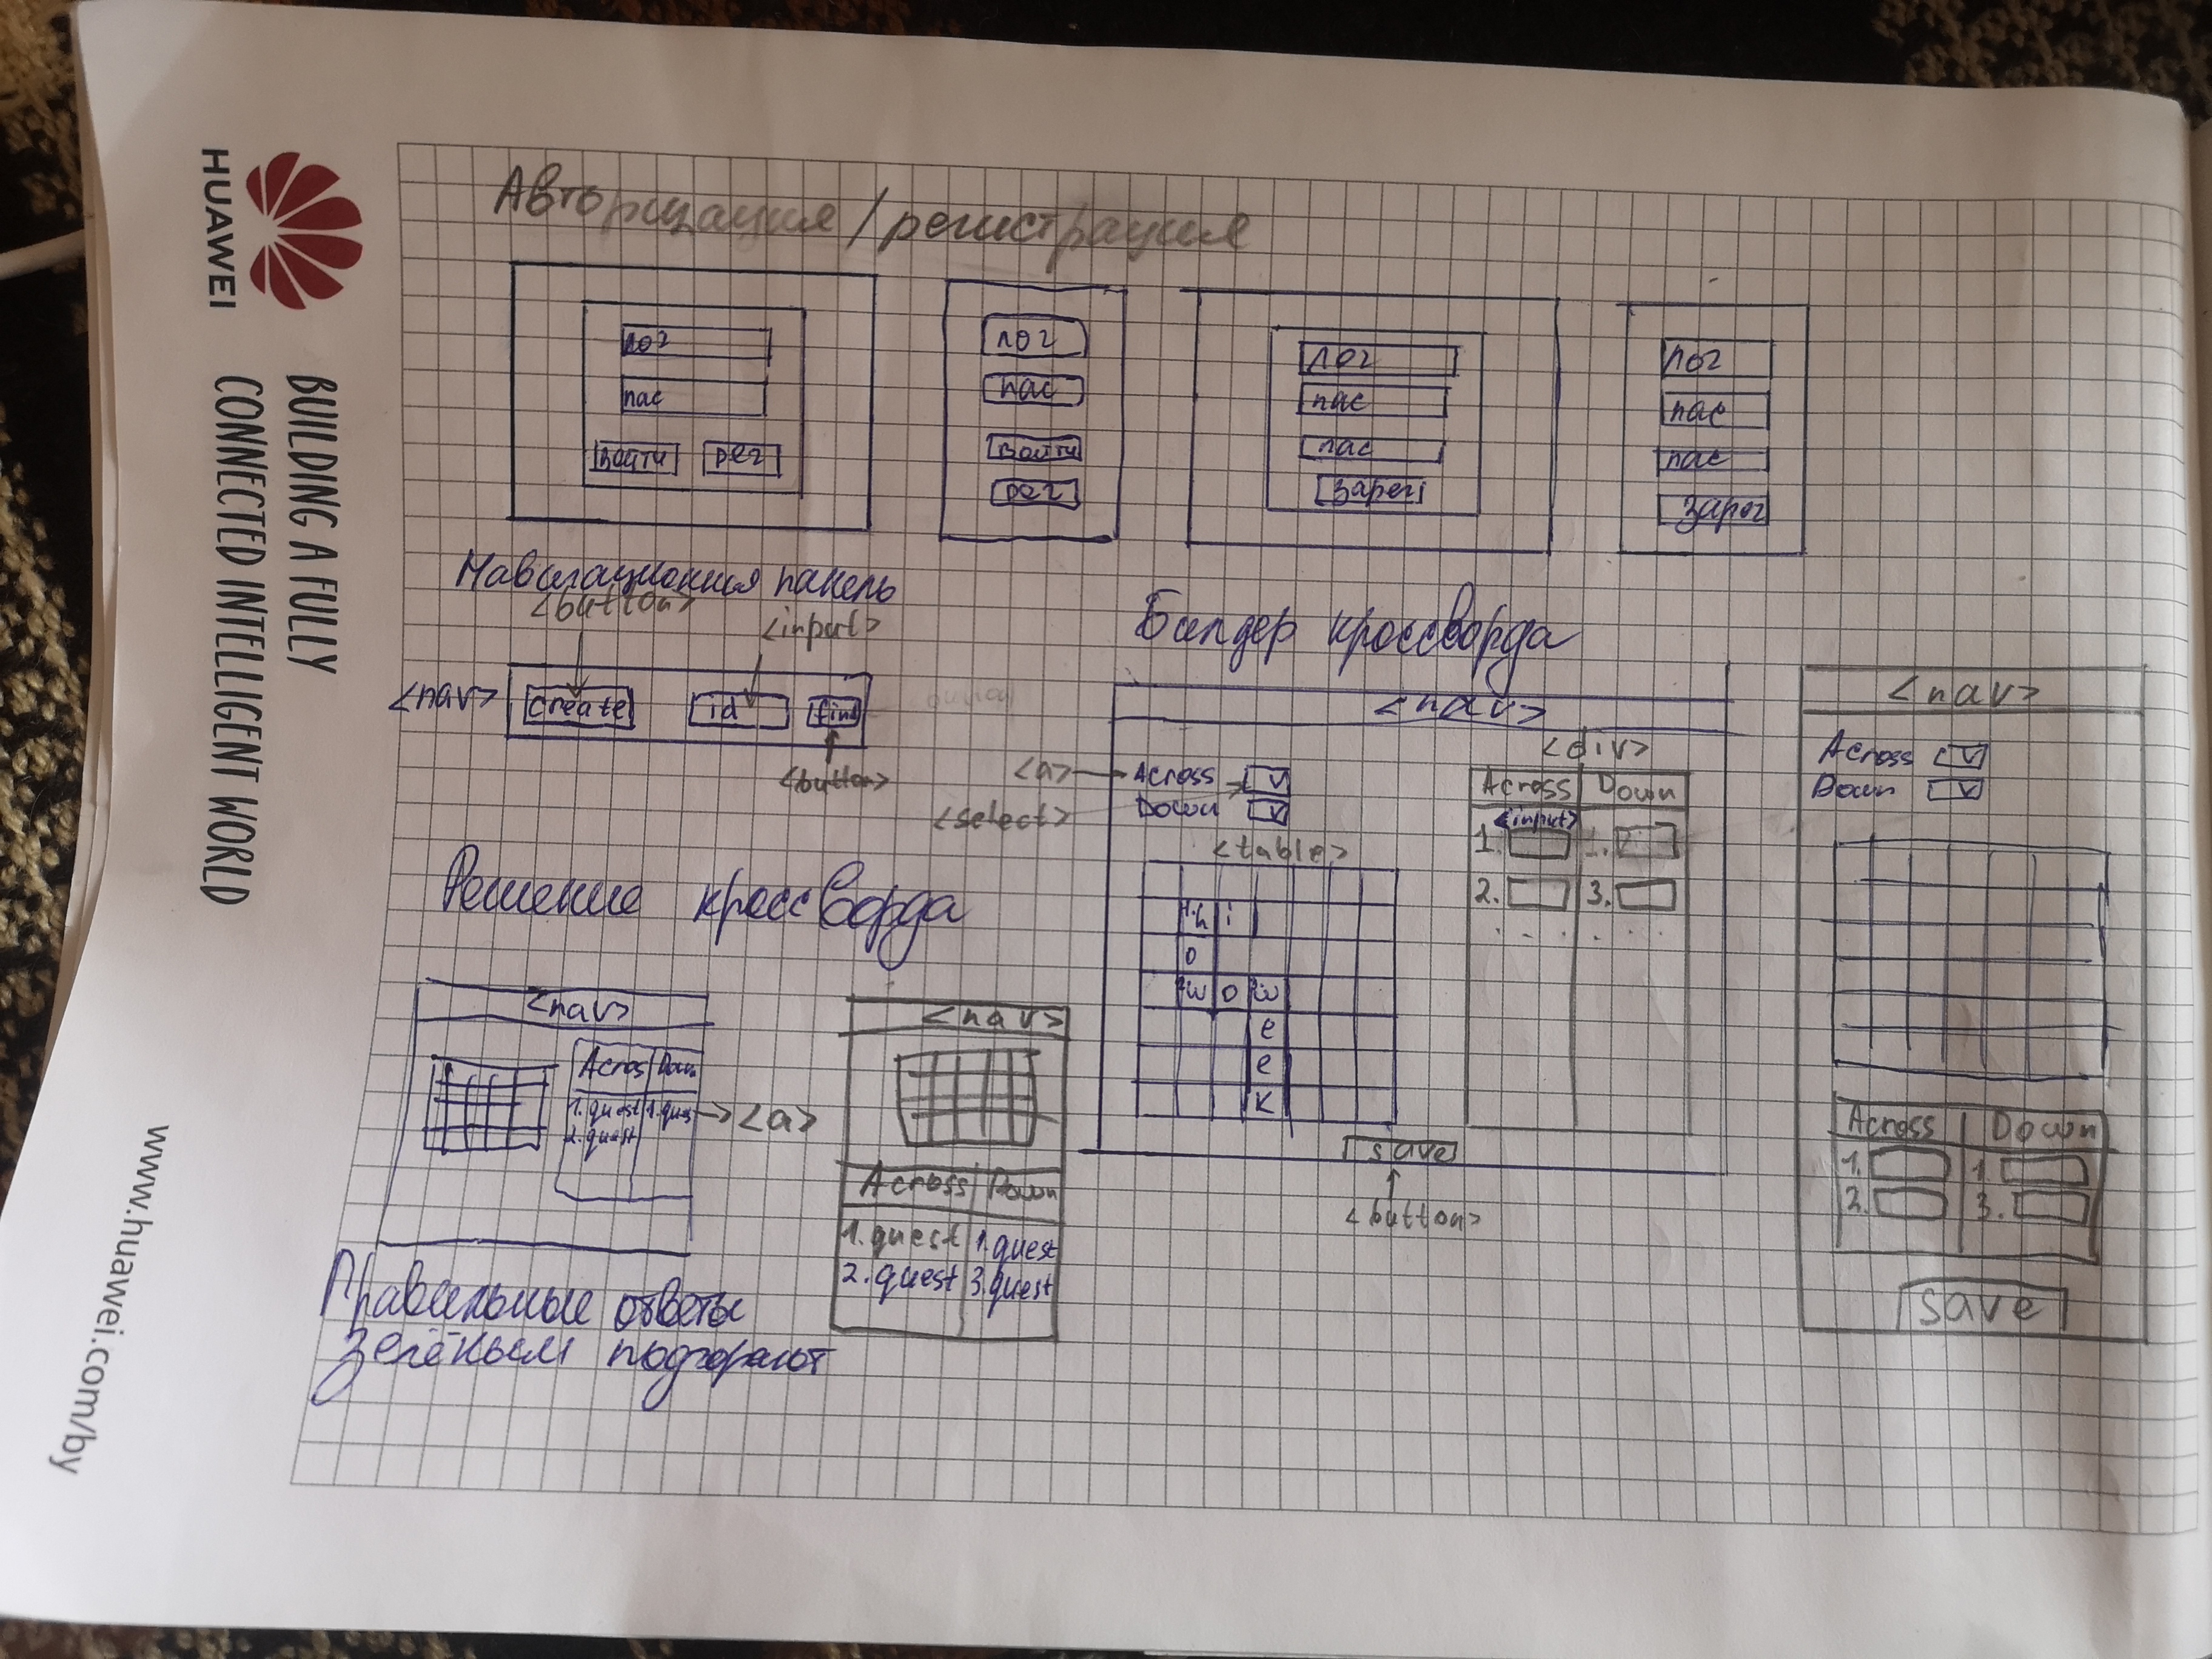 HUAWEI
BUILDING A FULLY
CONNECTED INTELLIGENT WORLD
www.huawei.com/by
Авторизация / регистрация
лог
пас
войти рег
лог
пас
войти
рег
лог
пас
пас
зарег
лог
пас
пас
зарег
Навигационная панель
<button>
<input>
<nav> create id find
<button>
Билдер кроссворда
<nav>
<a> Across v
<select> Down v
<table>
1.h i
o
2.w o 3.w
e
e
k
<div>
Across Down
<input>
1. 1.
2. 3.
. . . . . .
save
<button>
<nav>
Across v
Down v
Across Down
1. 1.
2. 3.
save
Решение кроссворда
<nav>
Across Down
1.quest 1.quest <a>
2.quest
<nav>
Across Down
1.quest 1.quest
2.quest 3.quest
Правильные ответы
зелёным подгорают